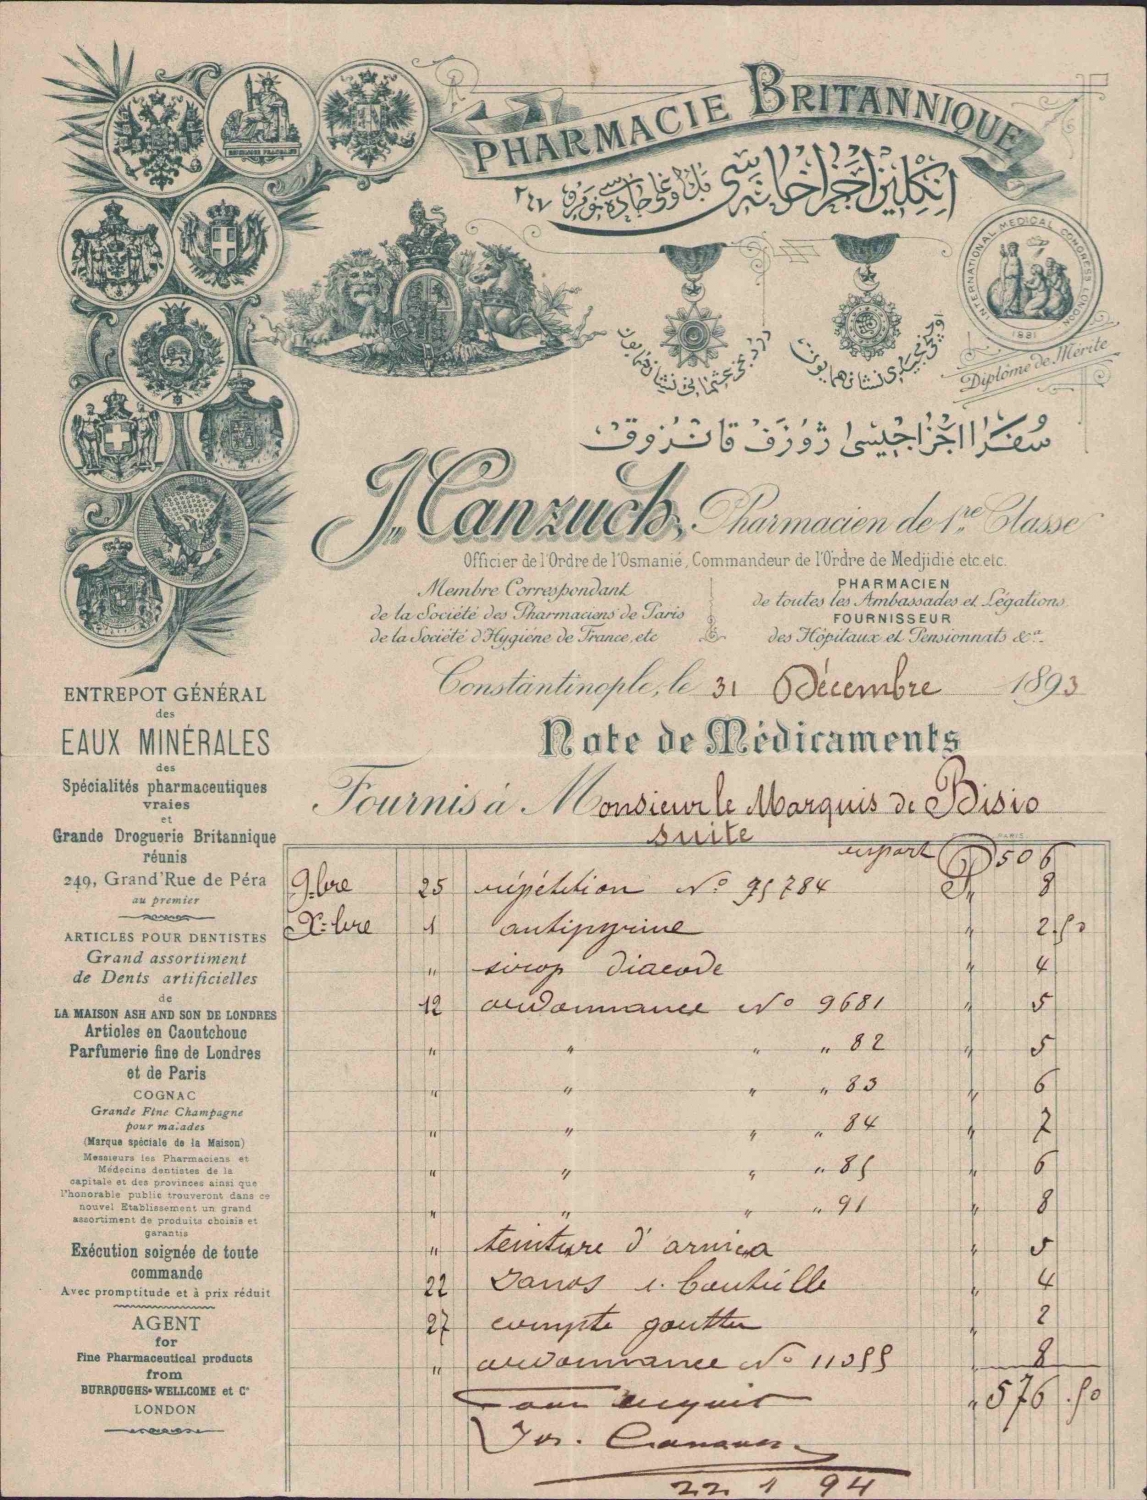 PHARMACIE BRITANNIQUE
انكليز اجزاخانه سی بك اوغلی جاده سی نومرو ٢٤٧
INTERNATIONAL MEDICAL CONGRESS, LONDON
1881
Diplôme de Mérite
J. Canzuch, Pharmacien de 1re Classe
Officier de l'Ordre de l'Osmanié, Commandeur de l'Ordre de Medjidié etc. etc.
Membre Correspondant
de la Société des Pharmaciens de Paris
de la Société d'Hygiène de France, etc
PHARMACIEN
de toutes les Ambassades et Légations.
FOURNISSEUR
des Hôpitaux et Pensionnats &a.
Constantinople, le 31 Décembre 1893
Note de Médicaments
Fournis à Monsieur le Marquis de Bisio
suite
report P 506
9-bre 25 répétition No 95784 P" 8
X-bre 1 antipyrine " 2.50
" sirop diacode " 4
12 ordonnance No 9681 " 5
" " " " 82 " 5
" " " " 83 " 6
" " " " 84 " 7
" " " " 85 " 6
" " " " 91 " 8
" teinture d'arnica " 5
22 Janos 1. bouteille " 4
27 compte goutte " 2
" ordonnance No 11055 8
" 576.50
Pour acquit
22 1 94
ENTREPOT GÉNÉRAL
des
EAUX MINÉRALES
des
Spécialités pharmaceutiques
vraies
et
Grande Droguerie Britannique
réunis
249, Grand'Rue de Péra
au premier
ARTICLES POUR DENTISTES
Grand assortiment
de Dents artificielles
de
LA MAISON ASH AND SON DE LONDRES
Articles en Caoutchouc
Parfumerie fine de Londres
et de Paris
COGNAC
Grande Fine Champagne
pour malades
(Marque spéciale de la Maison)
Messieurs les Pharmaciens et
Médecins dentistes de la
capitale et des provinces ainsi que
l'honorable public trouveront dans ce
nouvel Etablissement un grand
assortiment de produits choisis et
garantis
Exécution soignée de toute
commande
Avec promptitude et à prix réduit
AGENT
for
Fine Pharmaceutical products
from
BURROUGHS-WELLCOME et Co
LONDON